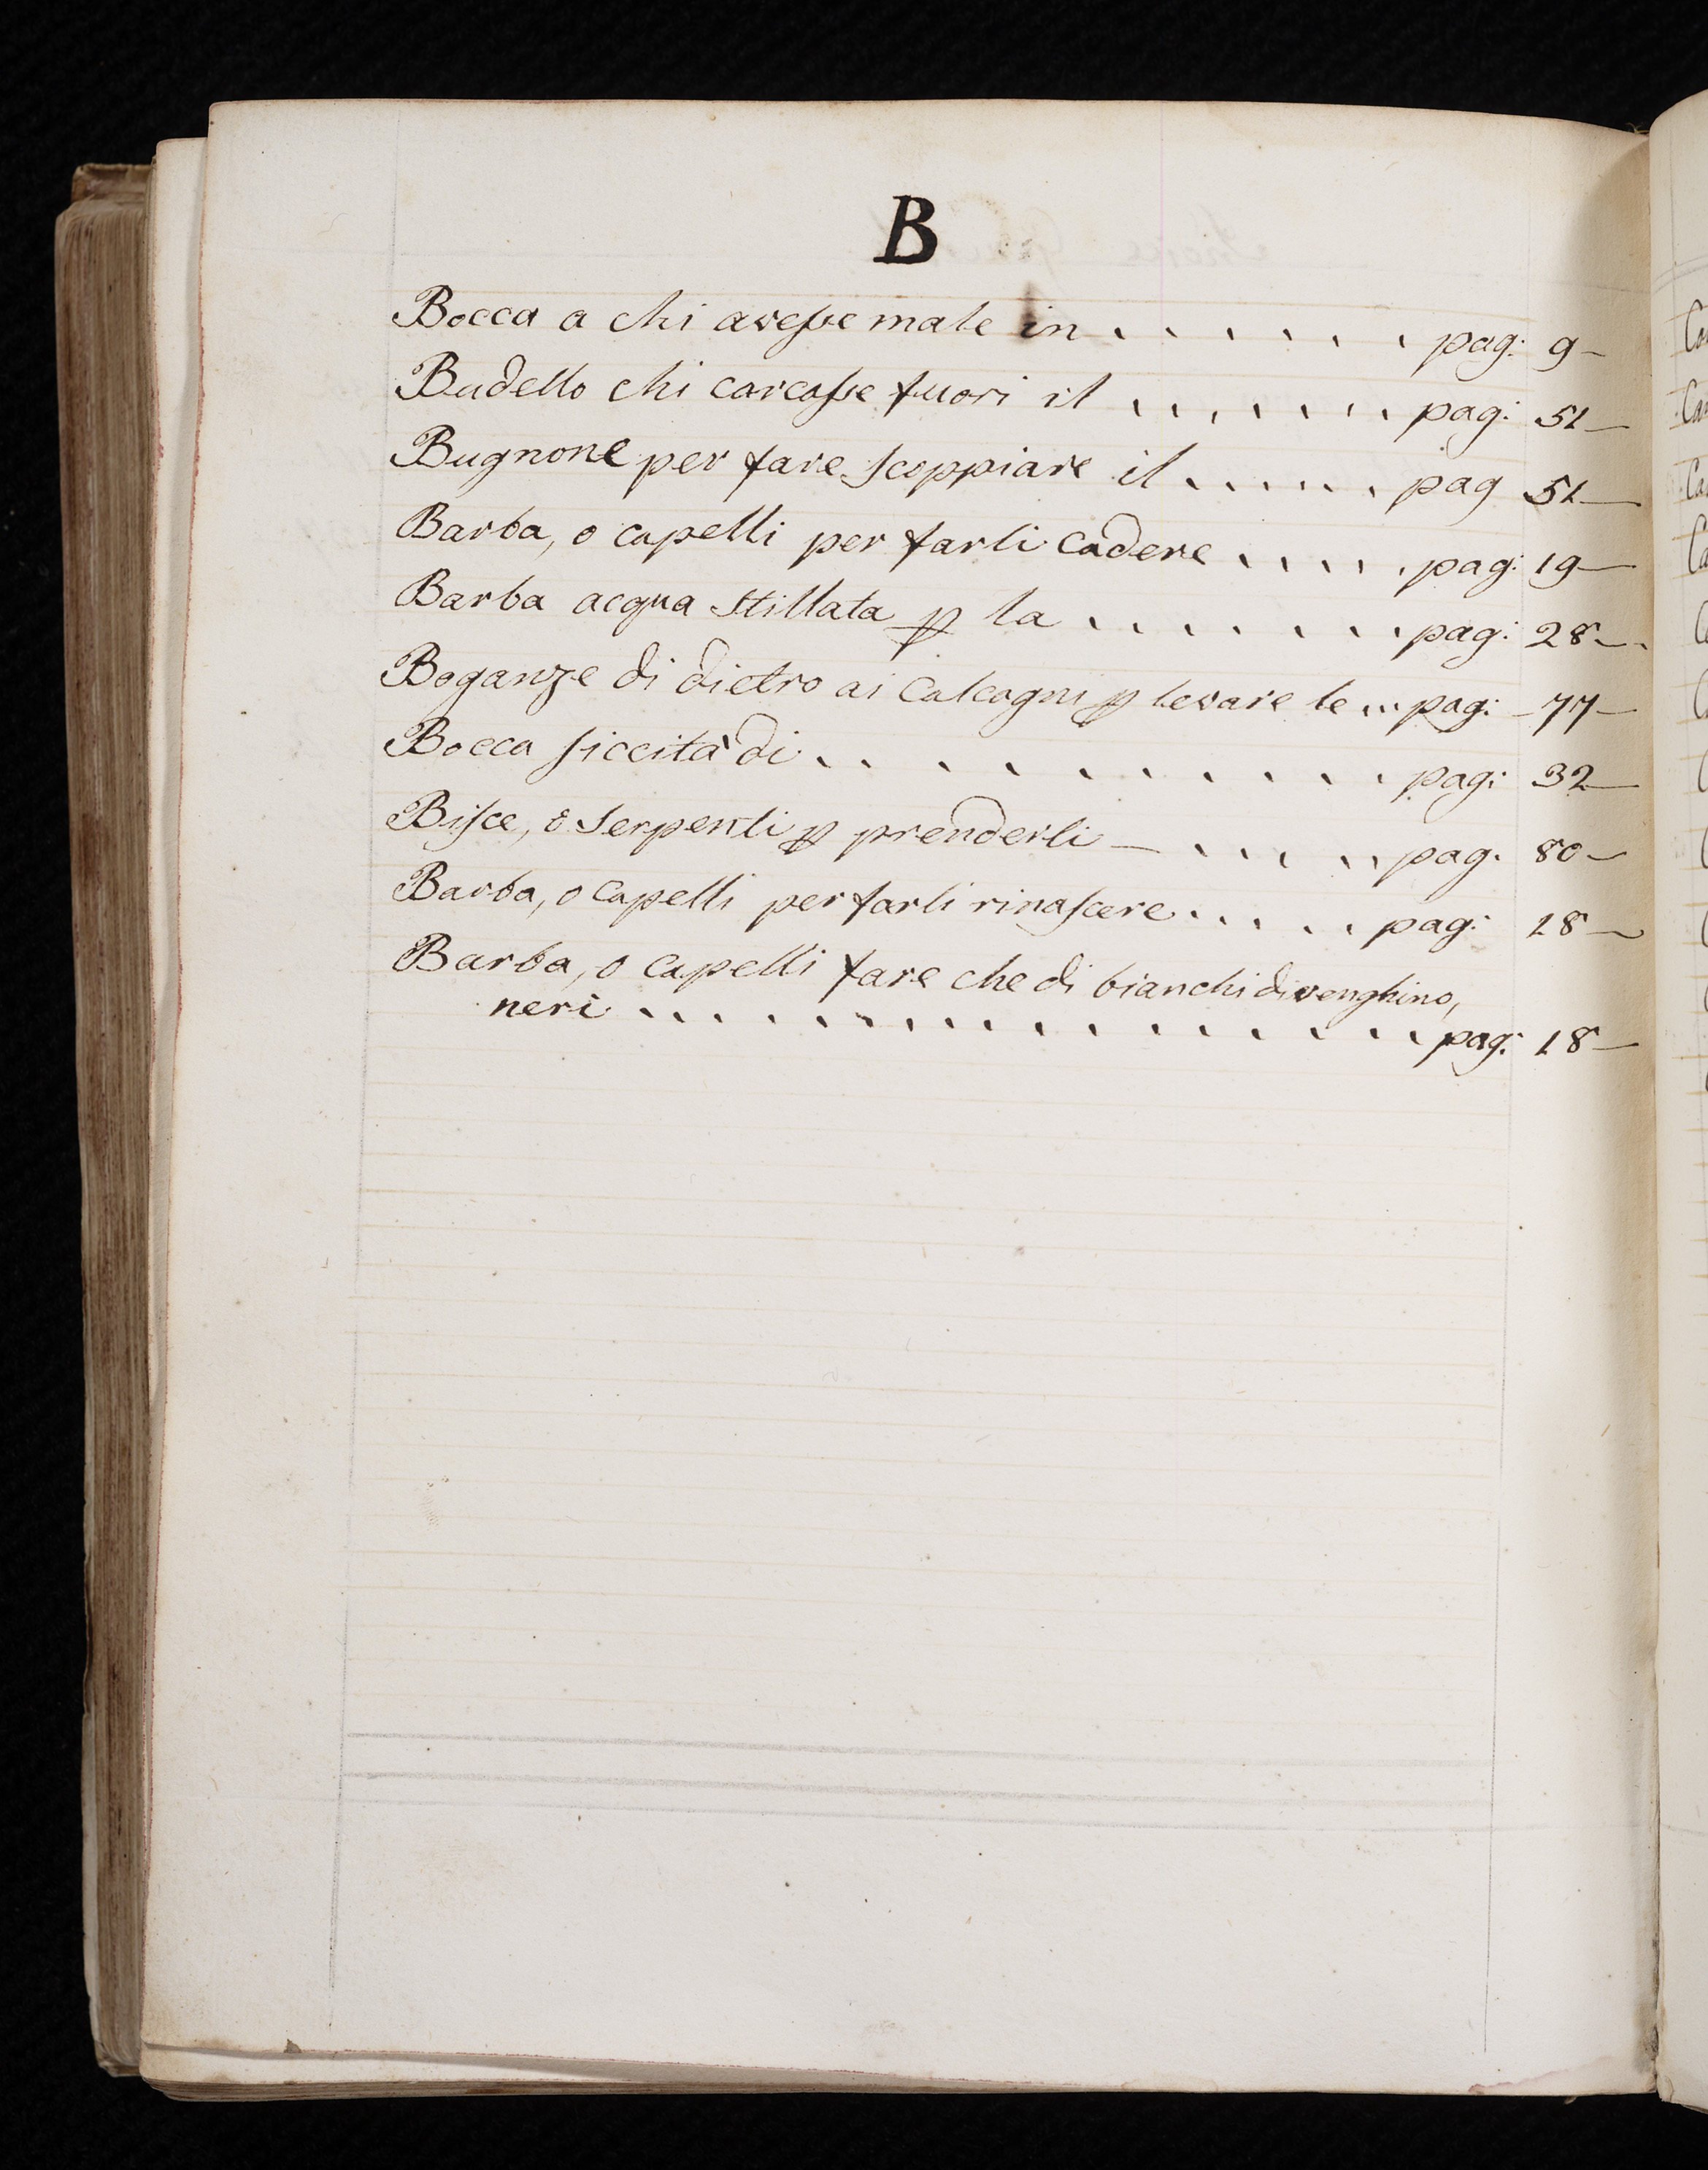 B
Bocca a chi avesse male in . . . . . . . pag: 9
Budello chi carcasse fuori il . . . . . . . pag: 51
Bugnone per fare scoppiare il . . . . . . pag 51
Barba, o capelli per farli cadere . . . . . pag: 19
Barba acqua stillata p la . . . . . . . pag: 28
Boganze di dietro ai calcagni p levare le ... pag: 77
Bocca siccità di . . . . . . . . . . pag: 32
Bisce, o serpenti p prenderli . . . . . pag. 80
Barba, o capelli per farli rinascere . . . . . pag: 18
Barba, o capelli fare che di bianchi divenghino,
neri . . . . . . . . . . . . . . . pag: 18